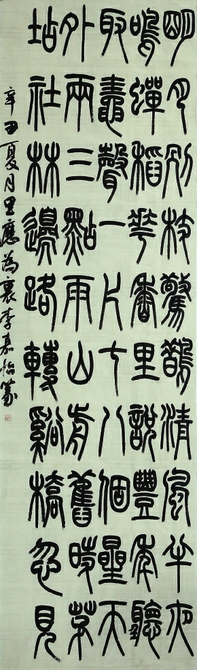 明月別枝驚鵲清風半夜
鳴蟬稻花香里說豐年聽
取鼃聲一片七八個星天
外兩三點雨山前舊時茅
坫社林邊路轉谿橋忽見
辛丑夏月 李嘉怡篆